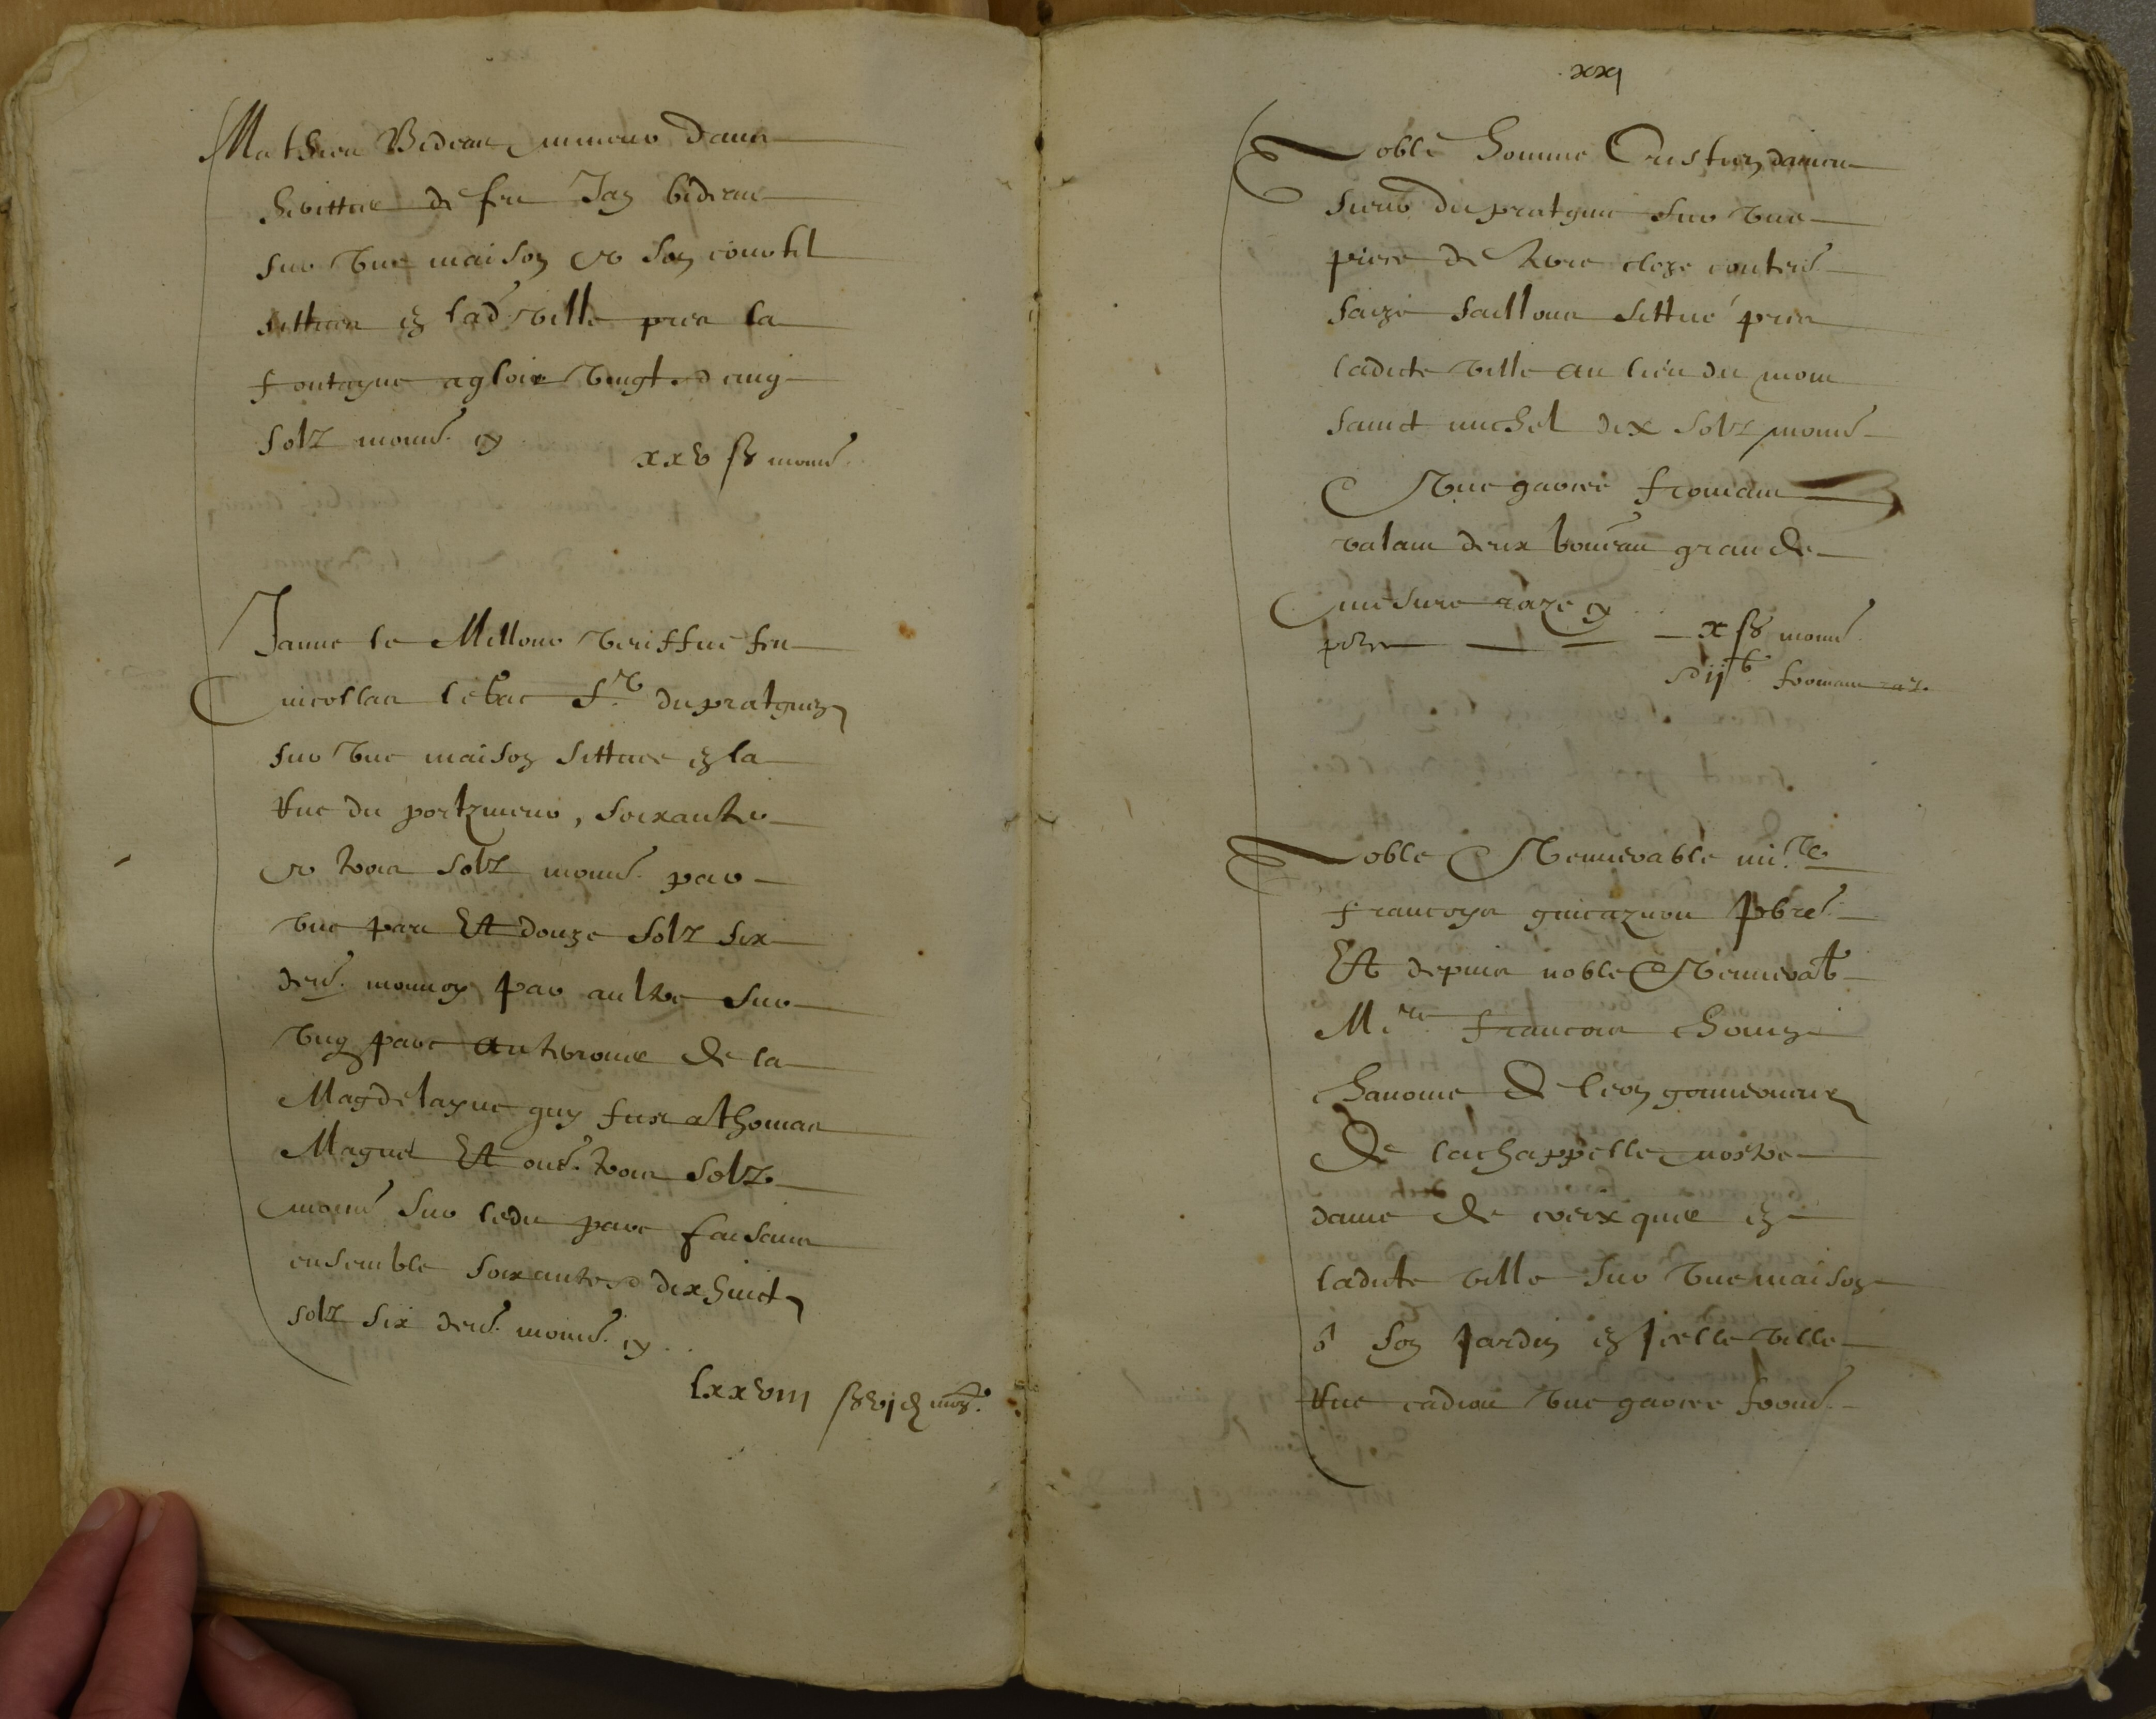 Mathieu Bideau mineur dans
herittier de feu Jan bideau
sur vne maison et son courtil
sittues en lad. ville pres la
fontayne agloix vingt et cinq
solz monn. cy
xxv s monn.
Janne le Millour veuffue feu
nicollas lebac sr. du pratguen
sur vne maison sittuee en la
rue du portzmeur, soixante
et trois solz monn. par
vne part Et douze solz six
den. monnoy par aultre sur
vng parc au terouer de la
Magdelayne quy fust a thomas
Maguet Et oud. trois solz
monn. sur ledit parc faisant
ensemble soixante et dix huict
solz six den. monn. cy
lxxviii s vj d mon.
xxj
Noble homme Cristien
sieur du pratguen sur vne
piece de terre cloze conten.
saize saillons sittue pres
ladicte ville au lieu du mont
sainct michel dix solz monn.
Et vne garcee fromant
valant deux bouceau grande
mesure raze cy
pour x s monn.
et ij b. fromant raz.
Noble et Venerable missre
francoys guicaznou pbre.
Et depuis noble et Venerab
M.re francois
chanoine de leon gouverneur
de la chappelle nostre
dame de en
ladicte ville sur vne maison
o son jardin en jcelle ville
rue vne garcee from.